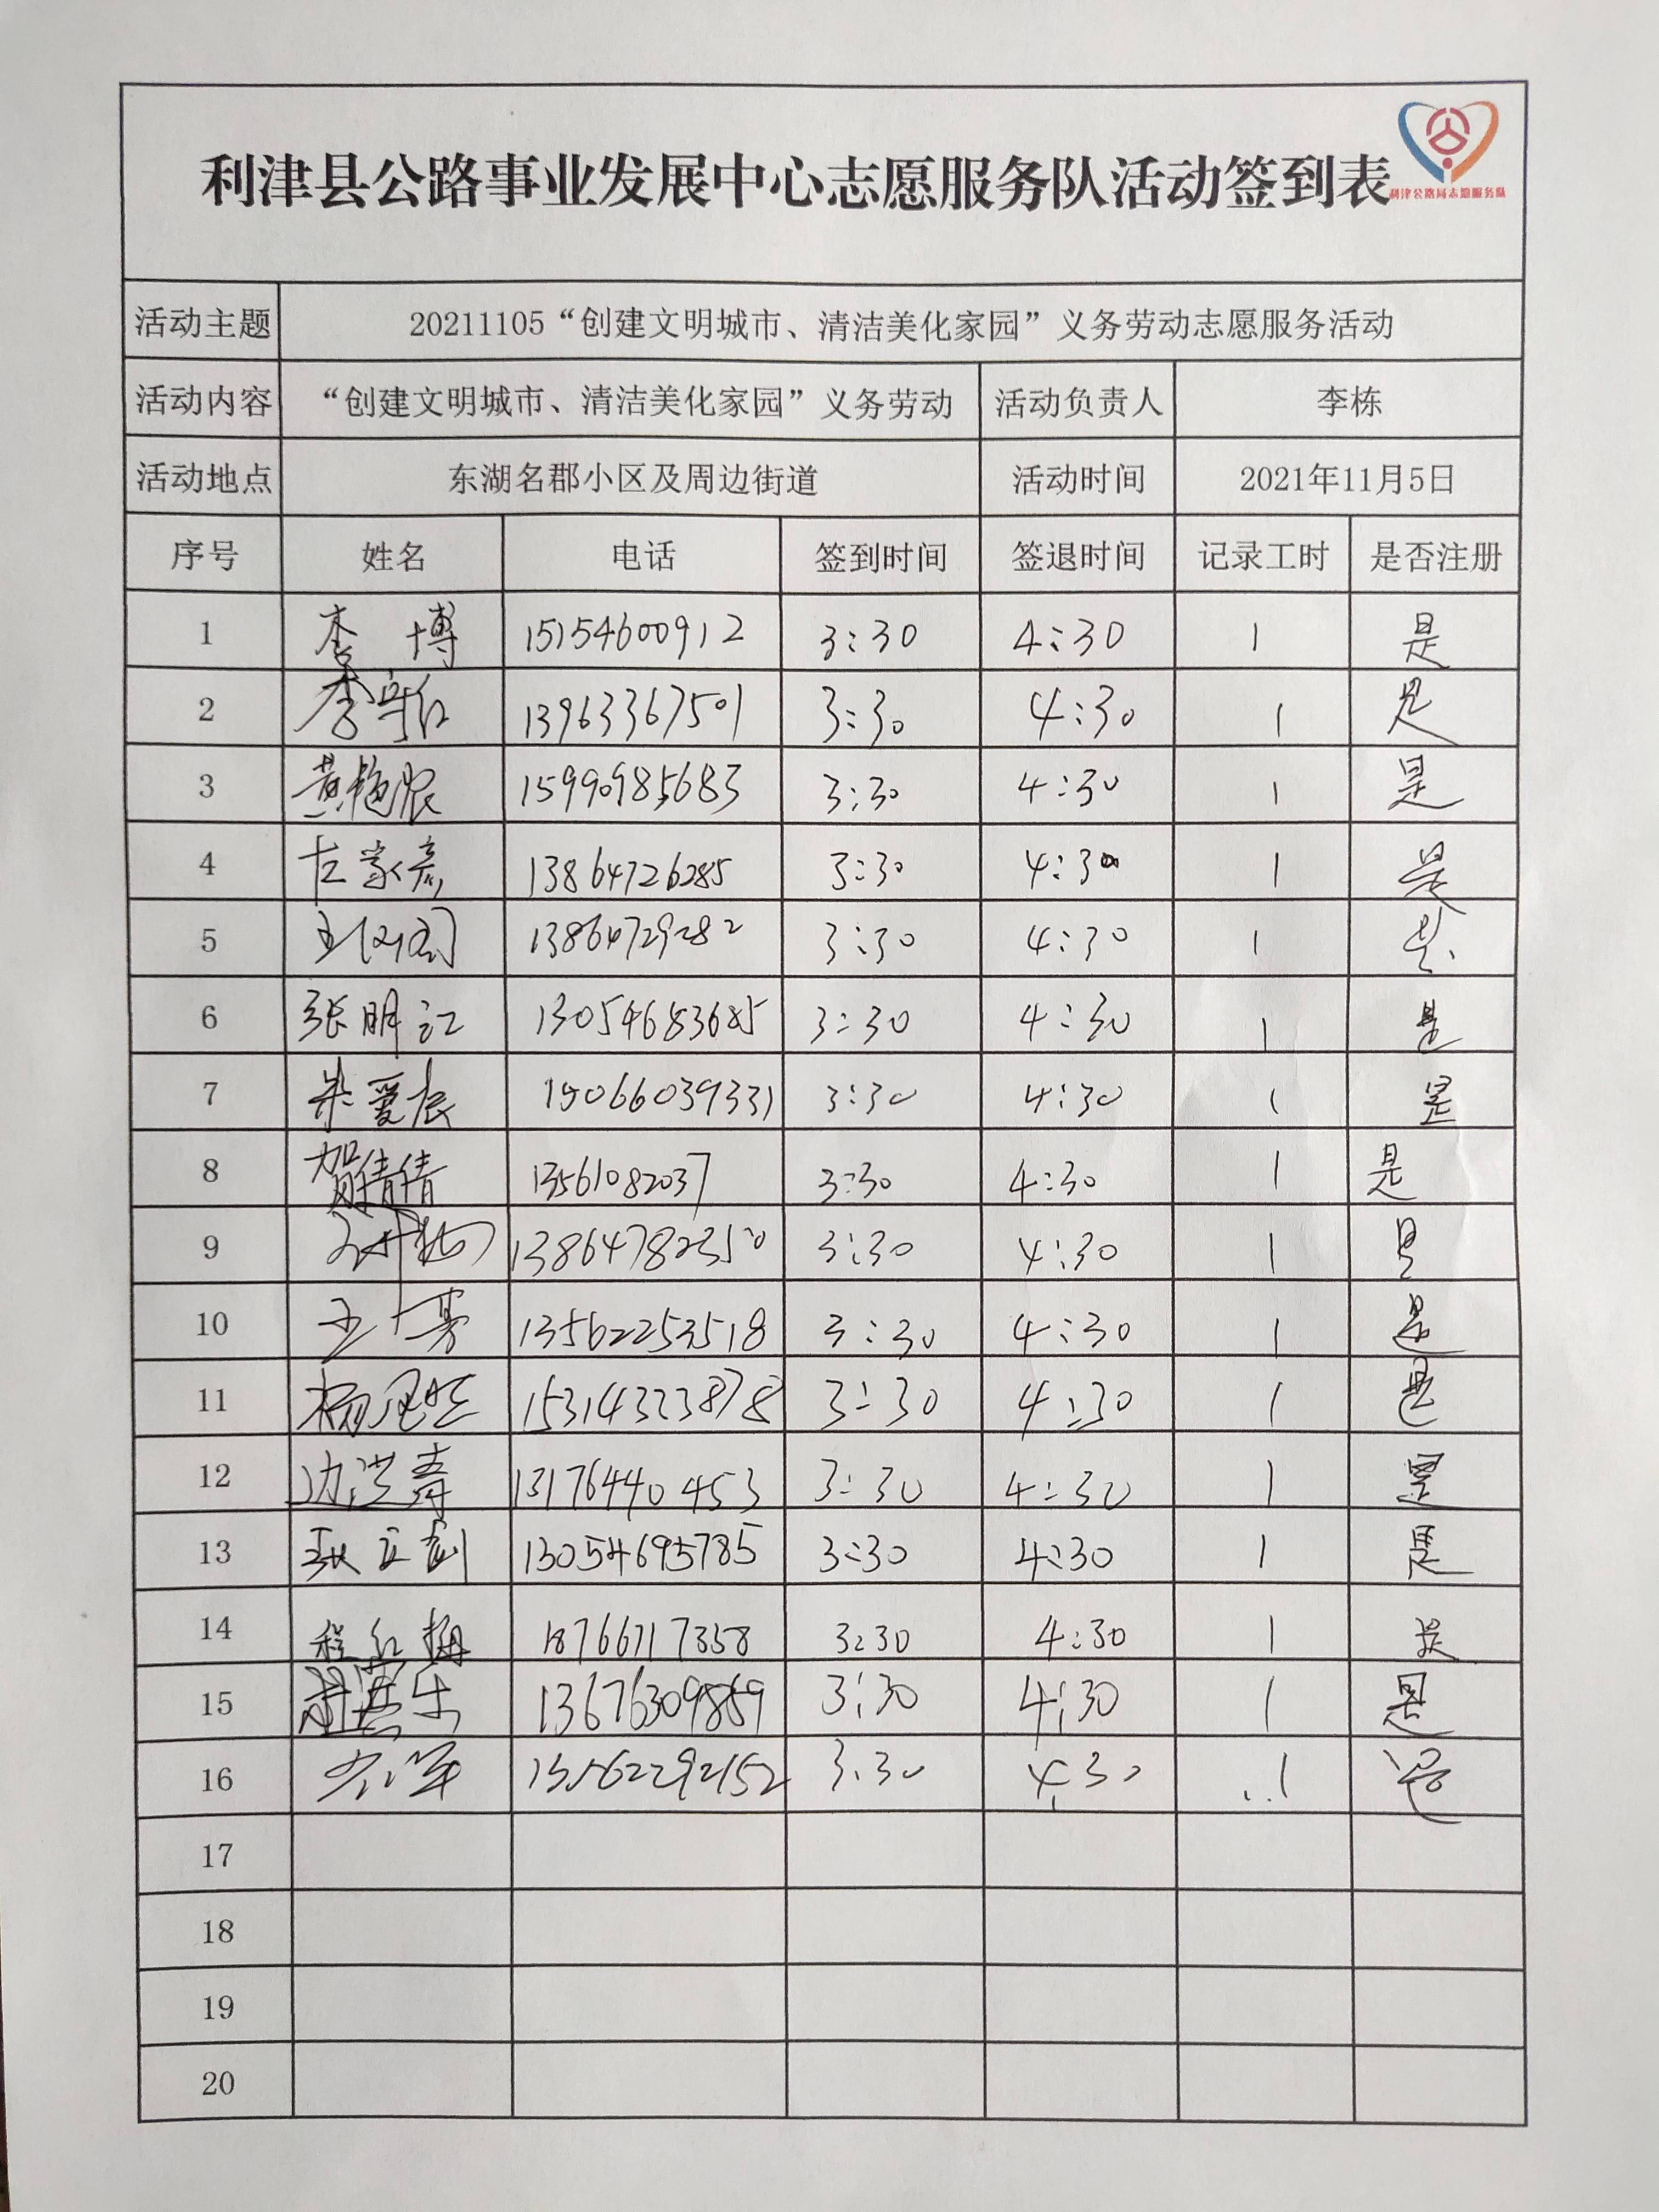 利津县公路事业发展中心志愿服务队活动签到表
利津公路局志愿服务队
活动主题 20211105“创建文明城市、清洁美化家园”义务劳动志愿服务活动
活动内容 “创建文明城市、清洁美化家园”义务劳动 活动负责人 李栋
活动地点 东湖名郡小区及周边街道 活动时间 2021年11月5日
序号 姓名 电话 签到时间 签退时间 记录工时 是否注册
1 李博 15154600912 3:30 4:30 1 是
2 13963367501 3:30 4:30 1 是
3 15990985683 3:30 4:30 1 是
4 13864726285 3:30 4:30 1 是
5 13864729282 3:30 4:30 1 是
6 张明江 13054683685 3:30 4:30 1 是
7 15066039331 3:30 4:30 1 是
8 贺倩倩 13561082037 3:30 4:30 1 是
9 3:30 4:30 1 是
10 13562253518 3:30 4:30 1 是
11 15314323878 3:30 4:30 1 是
12 边洪寿 13176440453 3:30 4:30 1 是
13 13054695785 3:30 4:30 1 是
14 程红梅 18766717358 3:30 4:30 1 是
15 13676309869 3:30 4:30 1 是
16 13562292152 3:30 4:30 1 是
17
18
19
20